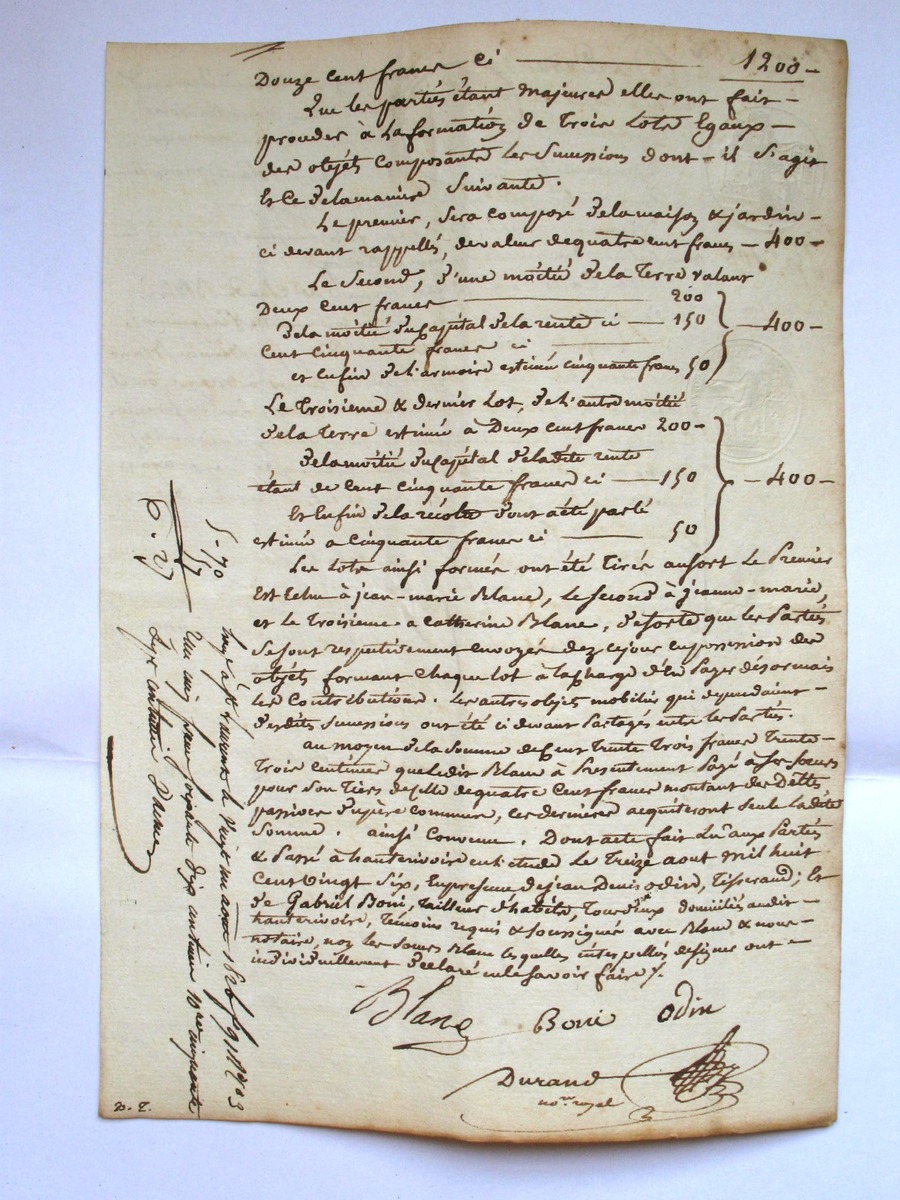 Douze cent francs ci — 1200 –
Que les parties étant majeures elles ont fait –
proceder à la formation de trois lots Egaux –
des objets composants les successions dont – il s'agit
Et ce de la maniere suivante.
Le premier, sera composé de la maison & jardin –
ci devant rappellés, de valeur de quatre cent francs – 400 –
Le Second, d'une moitié de la Terre valant
Deux cent francs — 200
de la moitié du capital de la rente ci — 150 – 400 –
Cent cinquante francs ci —
et enfin de l'armoire estimée cinquante francs 50
Le Troisieme & dernier Lot, de l'autre moitié
de la Terre estimée à Deux cent francs 200 –
de la moitié du capital de la dite rente
étant de cent cinquante francs ci — 150 – 400 –
Et Enfin de la récolte dont a été parlé
estimée a cinquante francs ci — 50
Les lots ainsi formés ont été tirés au sort Le Premier
Est échu à jean-marie Blanc, le second à jeanne-marie,
et le Troisieme a catherine Blanc, de sorte que les Parties
se sont respectivement envoyées dez ce jour en possession des
objets formant chaque lot à la charge d'en payer désormais
les Contributions. Les autres objets mobiliers qui dépendaient –
desdites successions ont été ci devant Partagés entre les Parties.
au moyen de la somme de Cent trente trois francs trente –
trois centimes que ledit Blanc a Présentement Payé à ses soeurs
pour son tiers de celle de quatre cent francs montant des Dettes
passives du père commun, ces dernieres acquiteront seule la dite
somme. ainsi convenu. Dont acte fait lu aux Parties
& Passé à hauterivoire en l'étude Le treize aout mil huit
cent vingt six, En presence de jean Denis odin, Tisserand; Et
de Gabriel Boni, tailleur d'habits, Tous deux domiciliés audit –
hauterivoire, témoins requis & soussignés avec Blanc & nous –
notaire, non les soeurs Blanc lesquelles interpellées de signer ont –
individuellement declaré ne le savoir faire /.
Blanc Boni Odin
Durand
no.re royal
5 – 70
57
6 . 27
le vingt un aout 1826
dix centimes cinquante